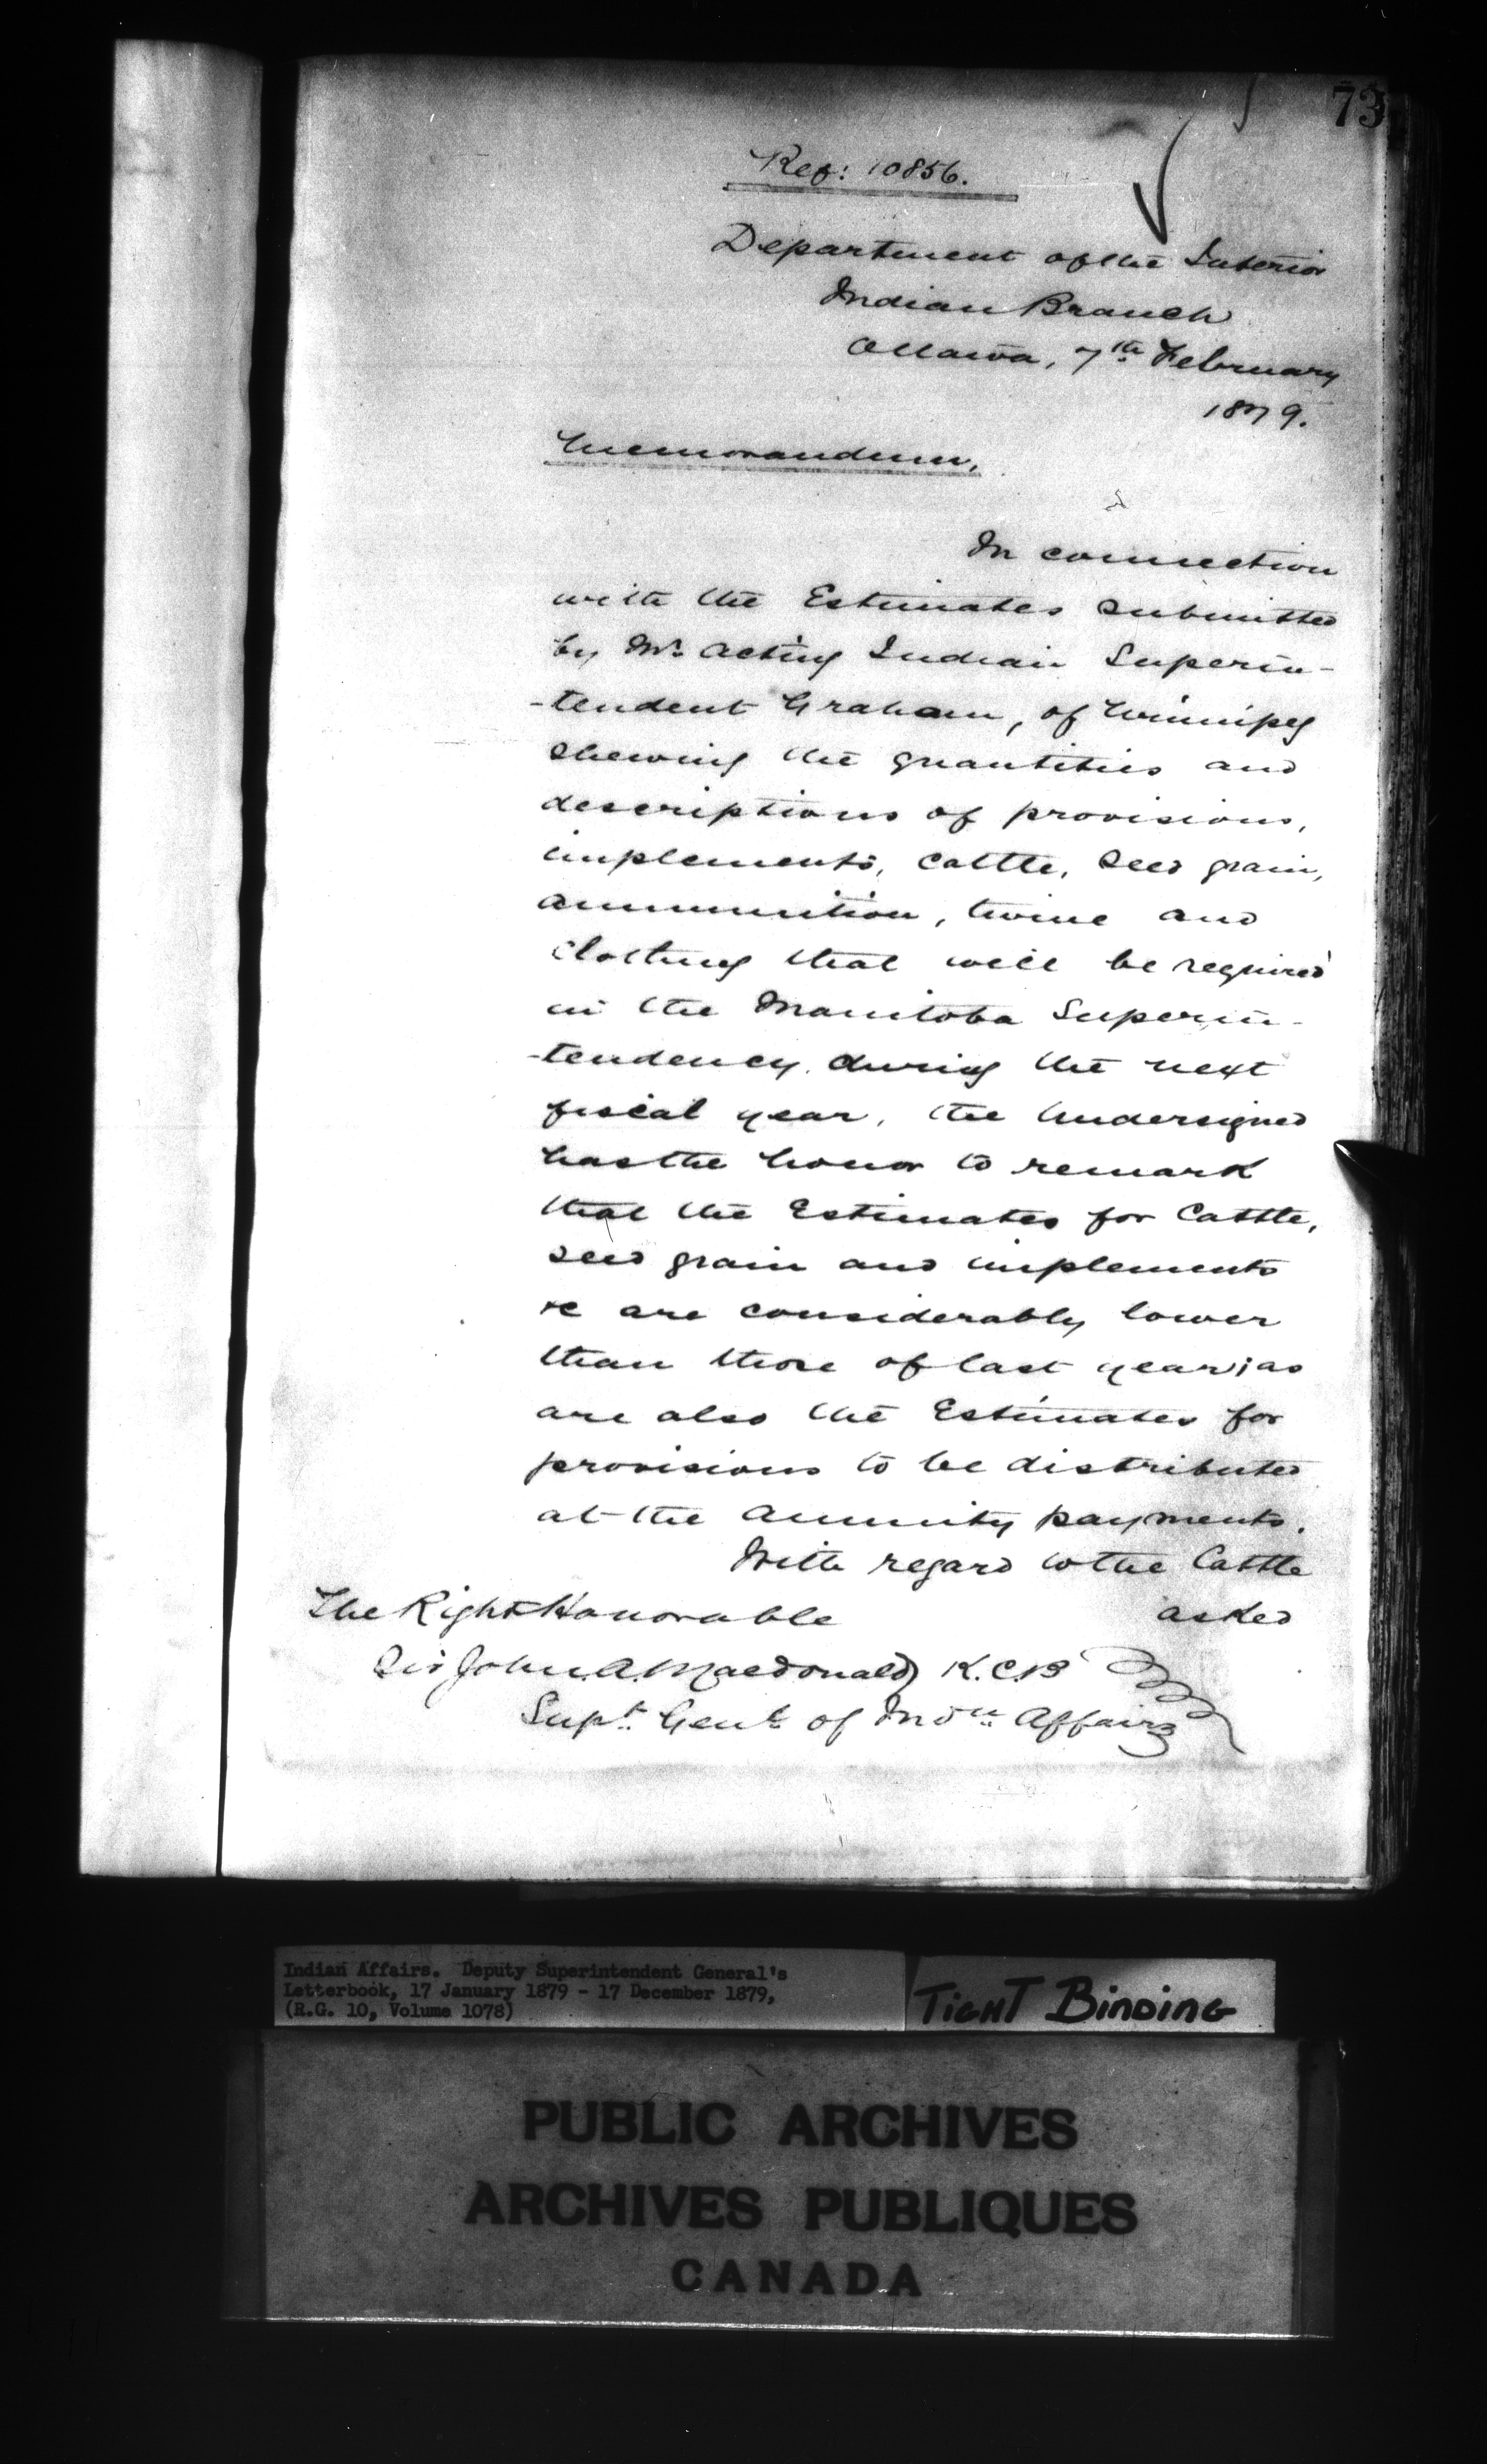 73
Ref: 10856.
Department of the Interior
Indian Branch
Ottawa, 7th February
1879.
Memorandum,
In connection
with the Estimates submitted
by Mr. Acting Indian Superin-
-tendent Graham, of Winnipeg
shewing the quantities and
descriptions of provisions,
implements, cattle, seed grain,
ammunition, twine and
clothing that will be required
in the Manitoba Superin-
-tendency during the next
fiscal year, the Undersigned
has the honor to remark
that the Estimates for Cattle,
seed grain and implements
&c are considerably lower
than those of last year; as
are also the Estimates for
provisions to be distributed
at the Annuity payments.
With regard to the Cattle
asked
The Right Honorable
Sir John A. Macdonald, K.C.B
Supt. Genl. of Indn. Affairs
Indian Affairs. Deputy Superintendent General's
Letterbook, 17 January 1879 - 17 December 1879,
(R.G. 10, Volume 1078)
TIGHT BINDING
PUBLIC ARCHIVES
ARCHIVES PUBLIQUES
CANADA